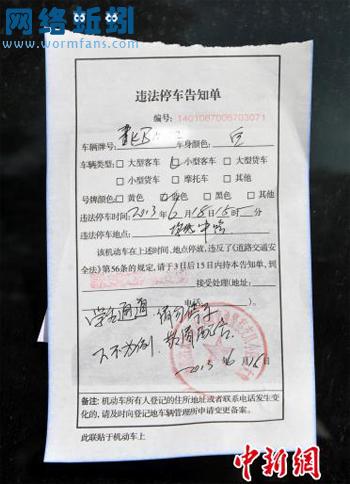 网络蚯蚓
www.wormfans.com
违法停车告知单
编号：1401087006703071
车辆牌号： 车身颜色：白
车辆类型：□大型客车 □小型客车 □大型货车
□小型货车 □摩托车 □其他
号牌颜色：□黄色 □蓝色 □黑色 □其他
违法停车时间：2013年6月18日15时 分
违法停车地点：
该机动车在上述时间、地点停放，违反了《道路交通安
全法》第56条的规定，请于3日后15日内持本告知单，到
接受处理(地址：
电话： )。
下不为例.
2013 6
备注：机动车所有人登记的住所地址或者联系电话发生变
化的，请及时向登记地车辆管理所申请变更备案。
此联贴于机动车上
中新網